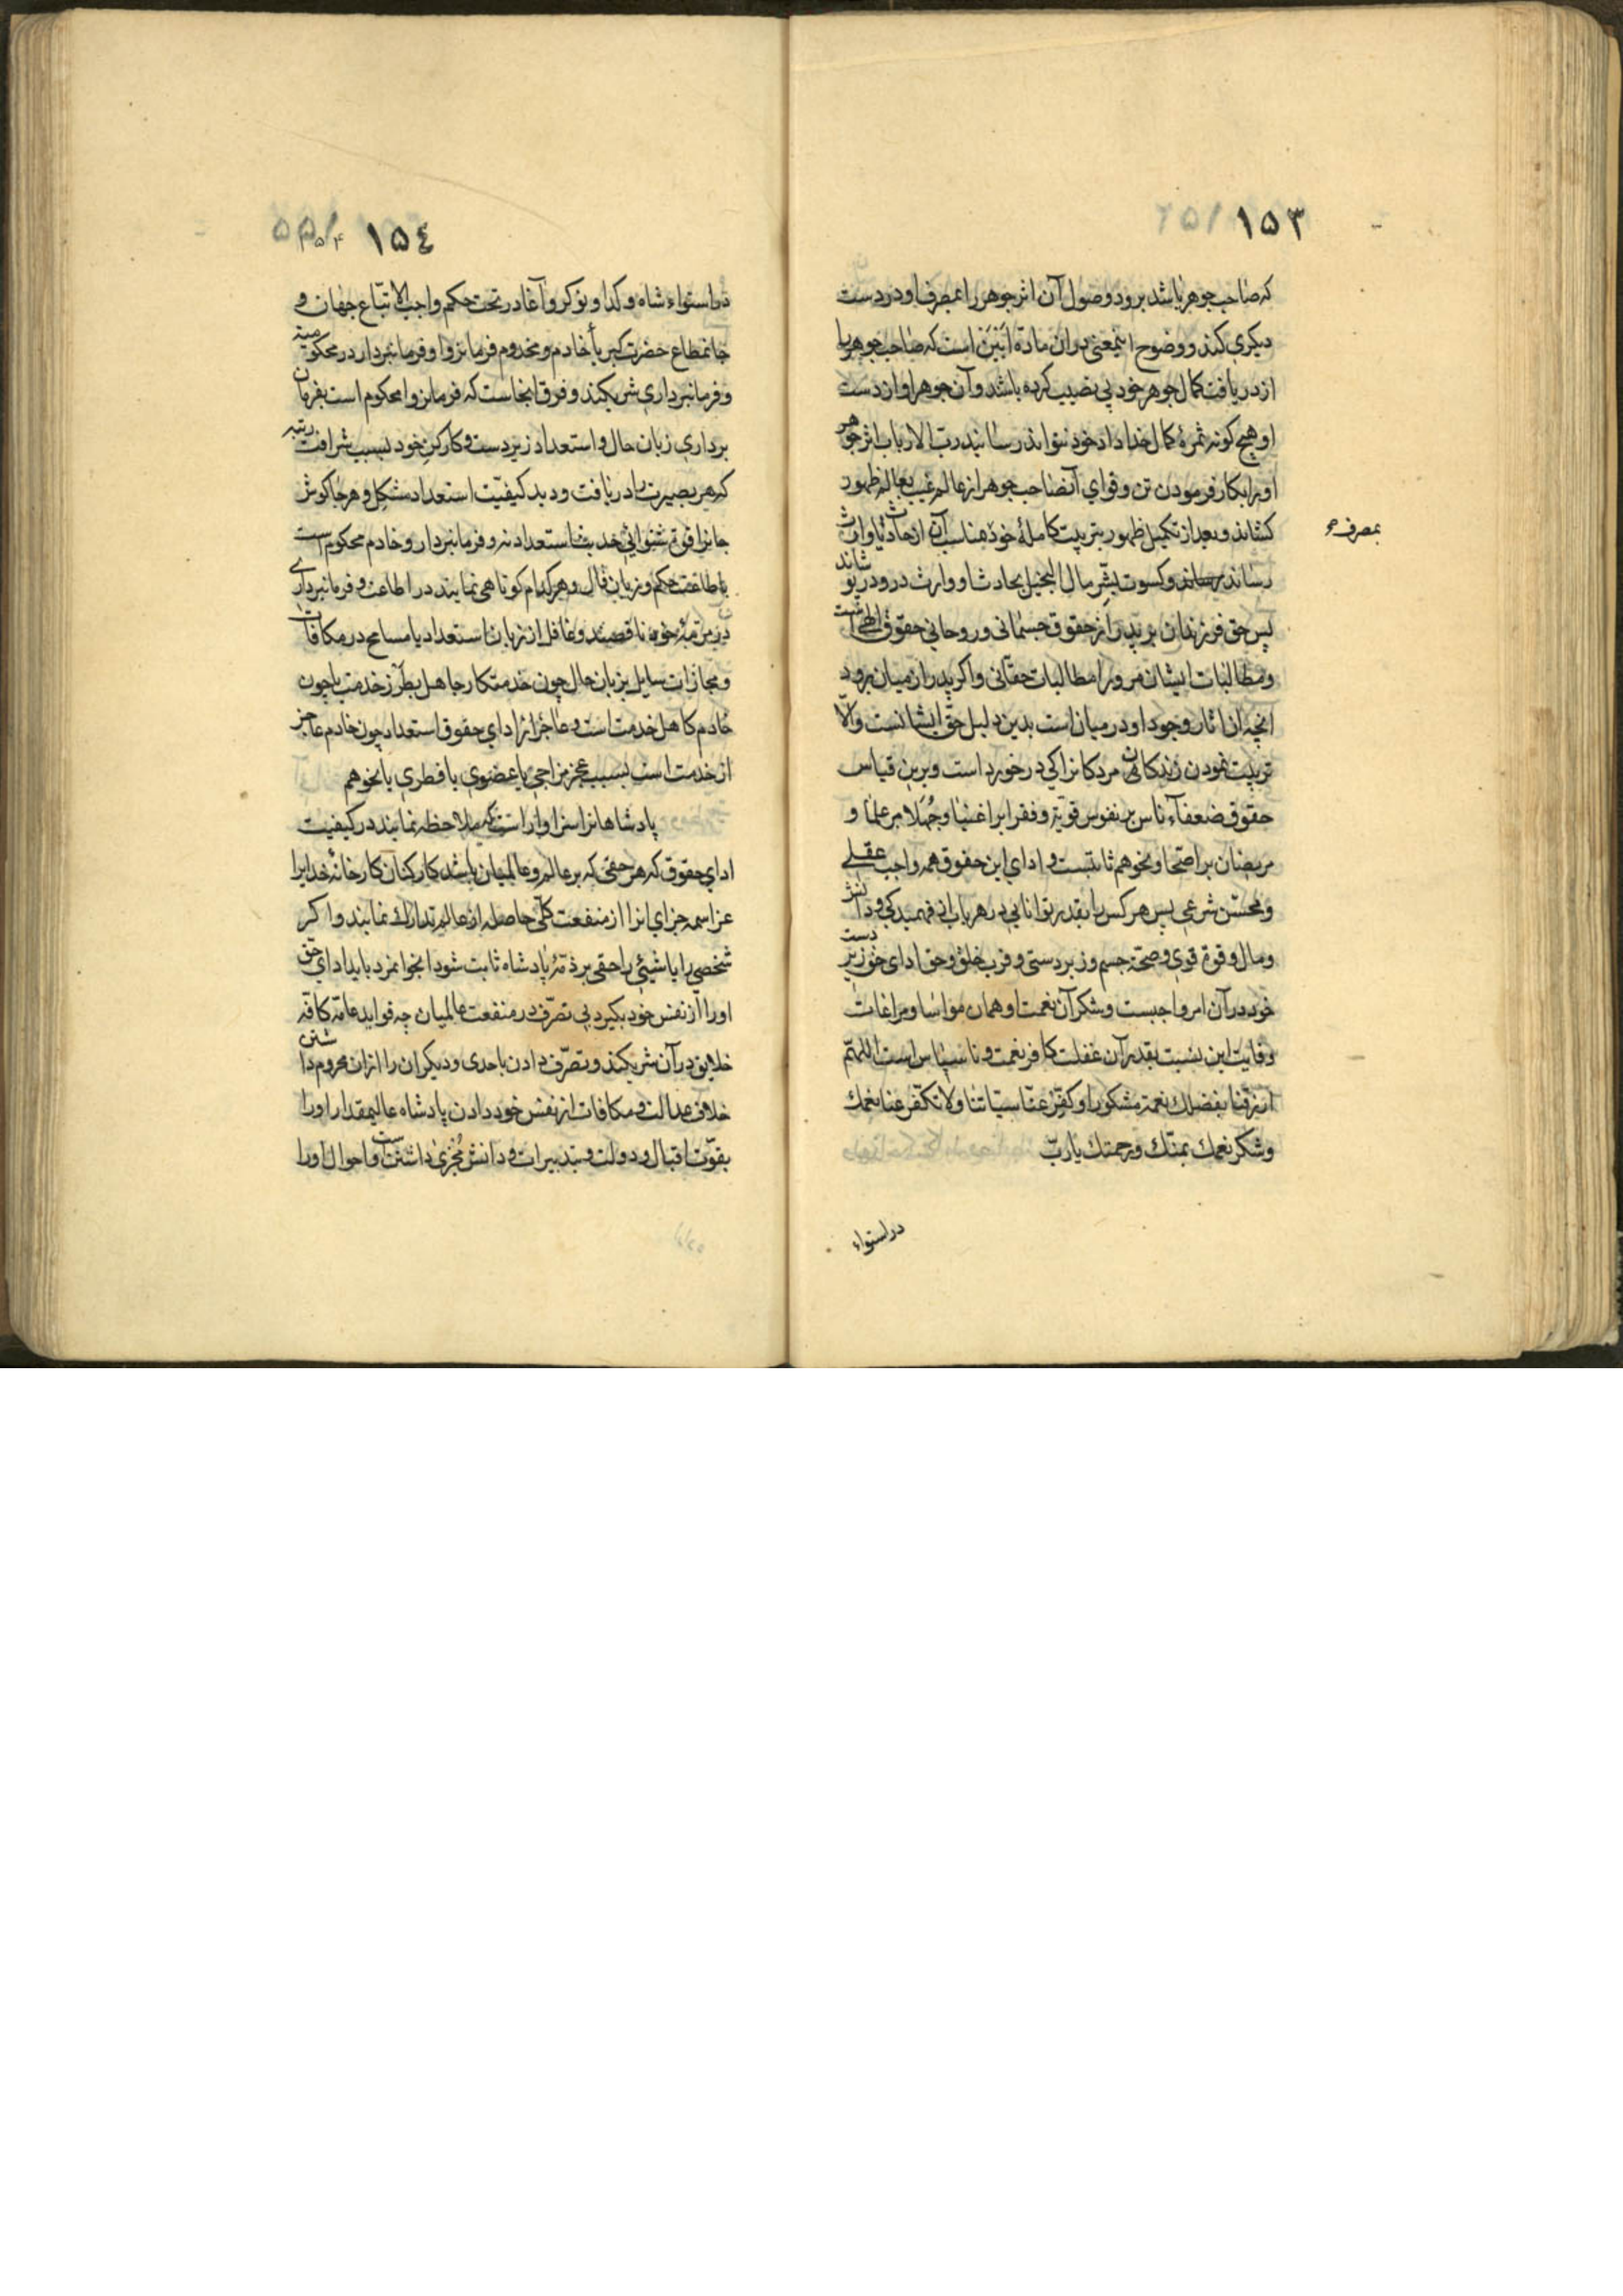 ١٥٣
که صاحب جوهر باشد برود و وصول آن اثر جوهر را بمصرف او در دست
دیکری کند و وضوح اینمعنی در ان ماده ابین است که صاحب جوهر را
از دریافت کمال جوهر خود بی نصیب کرده باشد و آن جوهر او از دست
او هیچ کونه ثمرهٔ کمال خداداد خود نتواند رسانید رب الارباب اثر جوهر
او را بکار فرمودن تن و قوای آنصاحب جوهر از عالم غیب بعالم ظهور
کشاند و بعد از تکمیل ظهور بتربیت کاملهٔ خود مناسب آن از حادث یا وارث
بمصرف
رساند و کسوت بشّر مال البخیل بحادث او وارث در و در پو شاند
پس حق فرزندان بر پدر از حقوق جسمانی و روحانی حقوق الهی است
و مطالبات ایشان مر ورا مطالبات حقانی و اکر پدر از میان برود
انچه از اثار وجود او در میان است بدین دلیل حق ایشانست والّا
تربیت نمودن زندکان مردکانرا کی در خورد است و برین قیاس
حقوق ضعفاء ناس بر نفوس قویّه و فقرا بر اغنیا و جُهَلا بر علما و
مریضان بر اصحا و نحوهم ثابتست و ادای این حقوق همه واجب عقلی
و محسّن شرعی پس هر کس را بقدر توانایی در هر باب از فهمیدکی و دانش
و مال و قوة قوی و صحّة جسم و زبردستی و قرب خلق و حق ادای حق زیر دست
خود در آن امر واجبست و شکر آن نعمت او همان مواسا و مراعات
و غایت این نسبت بقدر آن غفلت کافر نعمت و ناسپاس است اللهمّ
ارزقنا بفضلك نعمة مشکورا و کفّر عنّا سیّاتنا ولا تکفّر عنا نعمك
و شکر نعمك بمنّك و رحمتك یا ربّ
در استواء
١٥٤
در استواء شاه و کدا و نوکر و آغا در تحت حکم واجب الاتّباع جهان و
جانمطاع حضرت کبریا خادم و مخدوم فرمانروا و فرمانبردار در محکومیّه
و فرمانبرداری شریکند و فرق اینجاست که فرمانروا محکوم است بفرمان
برداری زبان حال و استعداد زیردست و کارکن خود بسبب شرافت رتبه
که هر بصیرت را دریافت و دید کیفیّت استعداد مشکل و هر جا کوش
جانرا قوة شنوائی حدیث استعداد نه و فرمانبردار و خادم محکوم است
باطاعت حکم و زبان قال و هر کدام کوتاهی نمایند در اطاعت و فرمانبرداری
در مرتبهٔ خود ناقصند و غافل از زبان استعداد یا مسامح در مکافات
و مجازات سایل بزبان حال چون خدمتکار جاهل بطرز خدمت یا چون
خادم کاهل خدمت است و عاجز از ادای حقوق استعداد چون خادم عاجز
از خدمت است بسبب عجز مزاجی یا عضوی یا فطری یا نحوهم
پادشاهانرا سزاوار است که ملاحظه نمایند در کیفیت
ادای حقوق که هر حقی که بر عالم و عالمیان باشد کارکنان کارخانهٔ خدایرا
عز اسمه جزای انرا از منفعت کلّی حاصله از عالم تدارك نمایند و اکر
شخصی را یا شیئی را حقی بر ذمّهٔ پادشاه ثابت شود انجوانمرد باید ادای حقّ
او را از نفس خود بکیرد بی تصرّف در منفعت عالمیان چه فواید عامّه کافّه
خلایق در آن شریکند و تصرّف دادن باحدی و دیکران را از ان محروم داشتن
خلاف عدالت و مکافات از نفس خود دادن پادشاه عالیمقدار او را
بقوّت اقبال و دولت و تدبیرات و دانش مُجزی داشتن است و احوال او را